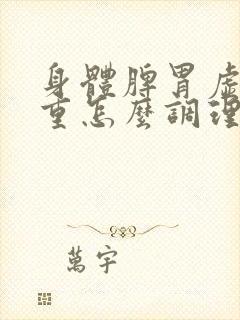 身體脾胃虛
重怎麼調理
萬宇